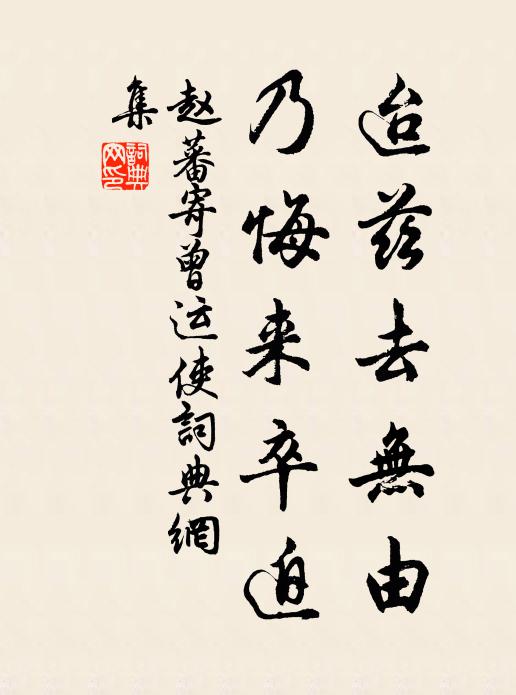 迨兹去無由
乃悔来卒迫
赵蕃寄曾运使詞典網
集
詞典
网印